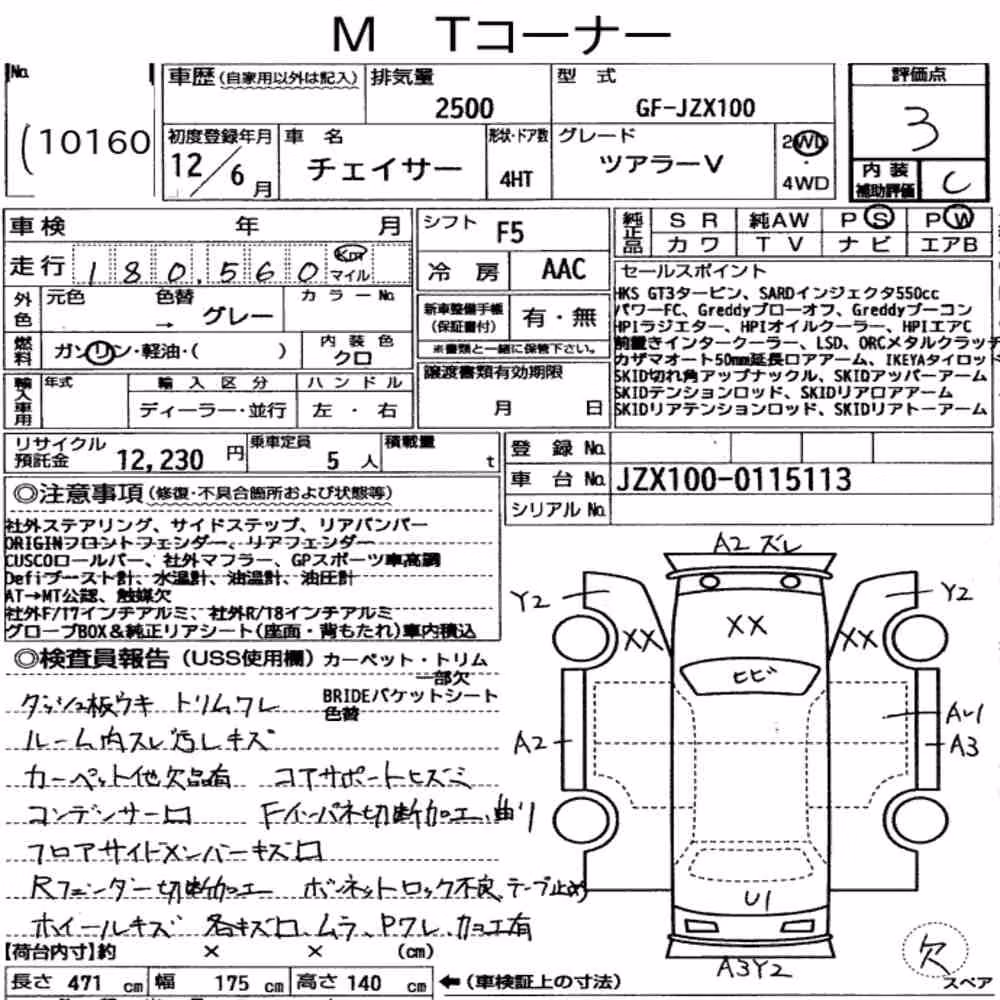 M Tコーナー
No.
10160
車歴 (自家用以外は記入)
排気量
2500
型 式
GF-JZX100
評価点
3
初度登録年月
12/6月
車 名
チェイサー
形状・ドア数
4HT
グレード
ツアラーV
2WD
4WD
内 装
補助評価
C
車検 年 月
シフト
F5
純正品
SR 純AW PS PW
カワ TV ナビ エアB
走行 180,560 Km マイル
冷 房
AAC
外色
元色 色替
→ グレー
カラーNo.
新車整備手帳
(保証書付)
有・無
※書類と一緒に保管下さい。
燃料
ガソリン・軽油・( )
内 装 色
クロ
輸入車用
年式
輸 入 区 分
ディーラー・並行
ハ ン ド ル
左 ・ 右
譲渡書類有効期限
月 日
セールスポイント
HKS GT3タービン、SARDインジェクタ550cc
パワーFC、Greddyブローオフ、Greddyブーコン
HPIラジエター、HPIオイルクーラー、HPIエアC
前置きインタークーラー、LSD、ORCメタルクラッチ
カザマオート50mm延長ロアアーム、IKEYAタイロッド
SKID切れ角アップナックル、SKIDアッパーアーム
SKIDテンションロッド、SKIDリアロアアーム
SKIDリアテンションロッド、SKIDリアトーアーム
リサイクル
預託金
12,230 円
乗車定員
5 人
積載量
t
登 録 No.
車 台 No. JZX100-0115113
シリアル No.
◎注意事項(修復・不具合箇所および状態等)
社外ステアリング、サイドステップ、リアバンパー
ORIGINフロントフェンダー、リアフェンダー
CUSCOロールバー、社外マフラー、GPスポーツ車高調
Defiブースト計、水温計、油温計、油圧計
AT→MT公認、触媒欠
社外F/17インチアルミ、社外R/18インチアルミ
グローブBOX＆純正リアシート(座面・背もたれ)車内積込
◎検査員報告(USS使用欄)カーペット・トリム
一部欠
BRIDEバケットシート
色替
ダッシュ板ウキ トリムワレ
ルーム内スレ汚レキズ
カーペット他欠品有 コアサポートヒズミ
コンデンサー凹 Fインパネ切断加工、曲り
フロアサイドメンバーキズ凹
Rフェンダー切断加工 ボンネットロック不良、テープ止め
ホイールキズ 各キズ凹、ムラ、Pワレ、カコエ有
A2ズレ
Y2
Y2
XX
XX
XX
ヒビ
A2
AU1
A3
U1
A3Y2
欠
スペア
【荷台内寸】約 × × (cm)
長さ 471 cm 幅 175 cm 高さ 140 cm ←(車検証上の寸法)